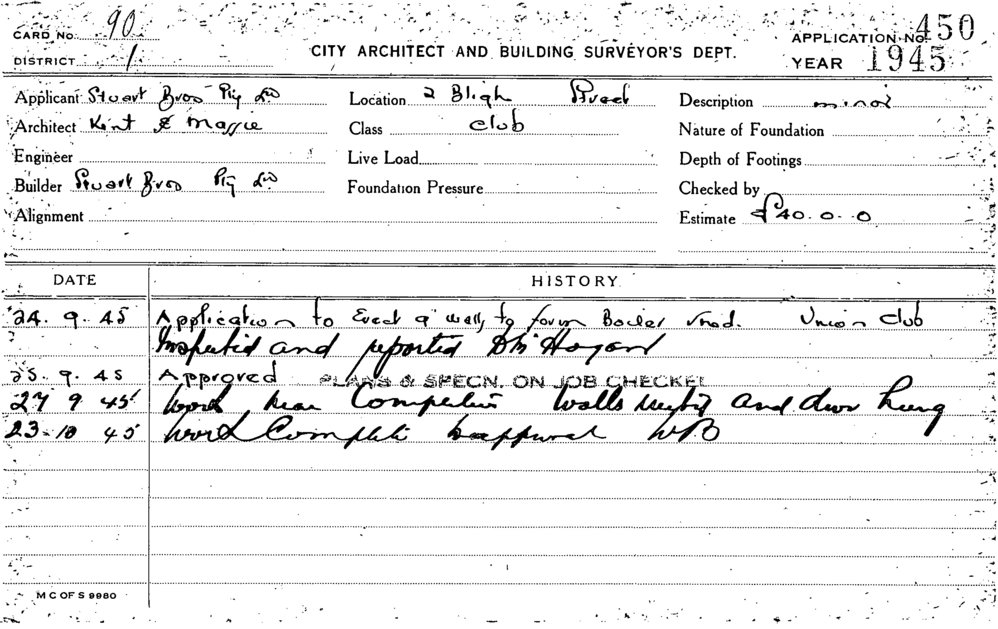 CARD No. 90
DISTRICT 1
CITY ARCHITECT AND BUILDING SURVEYOR'S DEPT.
APPLICATION No. 450
YEAR 1945
Applicant Stuart Bros Pty Ld
Architect Kent & Massie
Engineer
Builder Stuart Bros Pty Ld
Alignment
Location 2 Bligh Street
Class Club
Live Load
Foundation Pressure
Description minor
Nature of Foundation
Depth of Footings
Checked by
Estimate £40.0.0
DATE HISTORY
24.9.45 Application to Erect 9" walls to form Boiler Union Club
Inspected and reported Hogan
25.9.45 Approved PLANS & SPECN. ON JOB CHECKED
27 9 45 Work near Completion Walls and door hung
23-10 45 Work Complete
M C OF S 9980